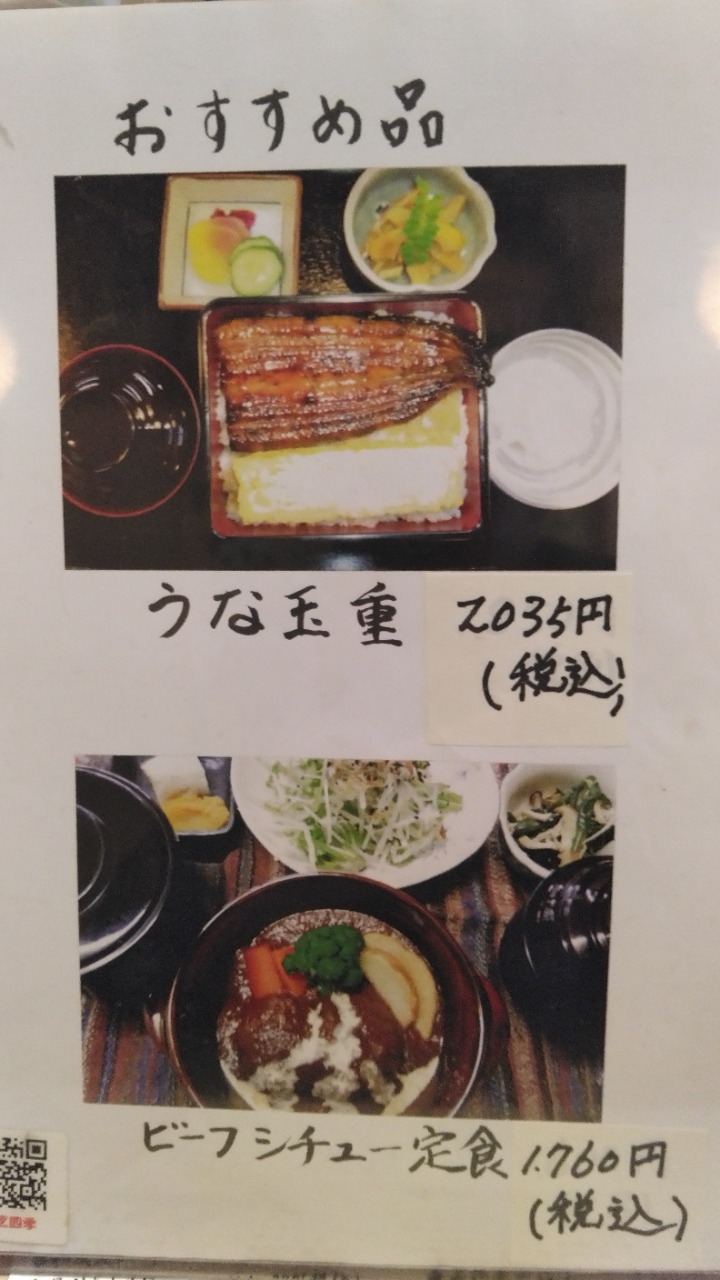 おすすめ品
うな玉重 2035円
(税込)
ビーフシチュー定食 1.760円
(税込)